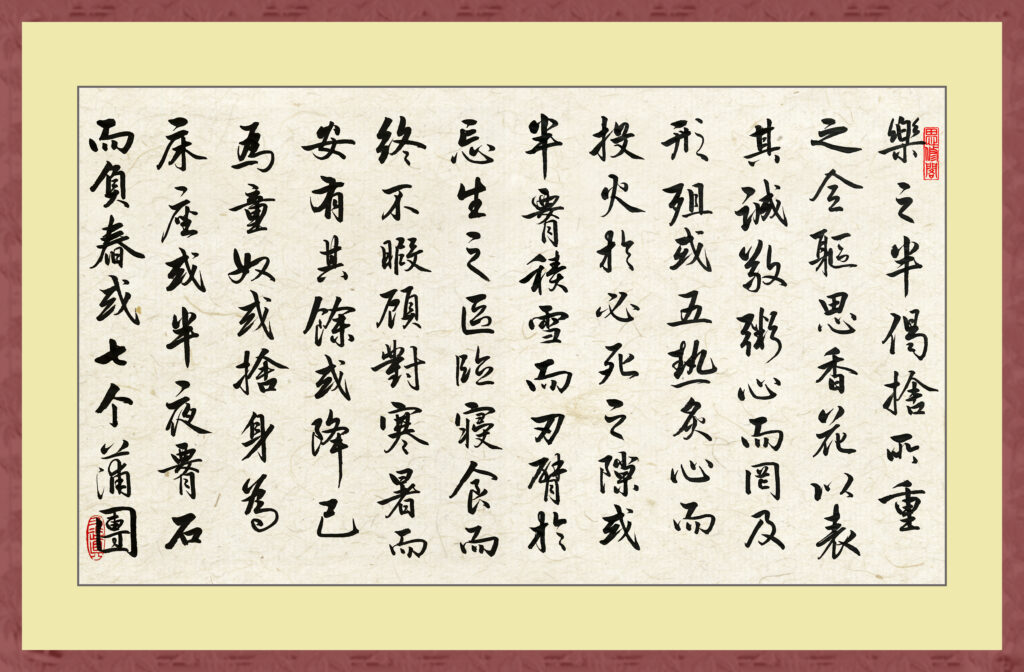 思修閣
樂之半偈捨所重
之全軀思香花以表
其誠敬粥心而罔及
形殂或五熱炙心而
投火於必死之隙或
半腰積雪而刃臂於
忘生之區臨寢食而
終不暇顧對寒暑而
安有其餘或降己
為童奴或捨身為
床座或半夜腰石
而負舂或七个蒲團